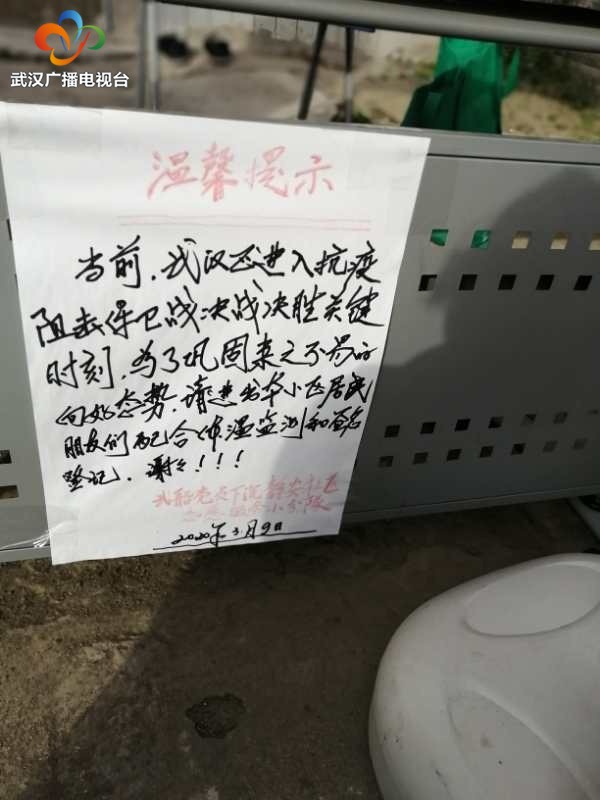 武汉广播电视台
温馨提示
当前，武汉正进入抗疫
阻击保卫战决战决胜关键
时刻，为了巩固来之不易的
向好态势，请进出本小区居民
朋友们配合体温监测和签名
登记，谢谢！！！
武船党员下沉静安社区
小分队
2020年3月9日